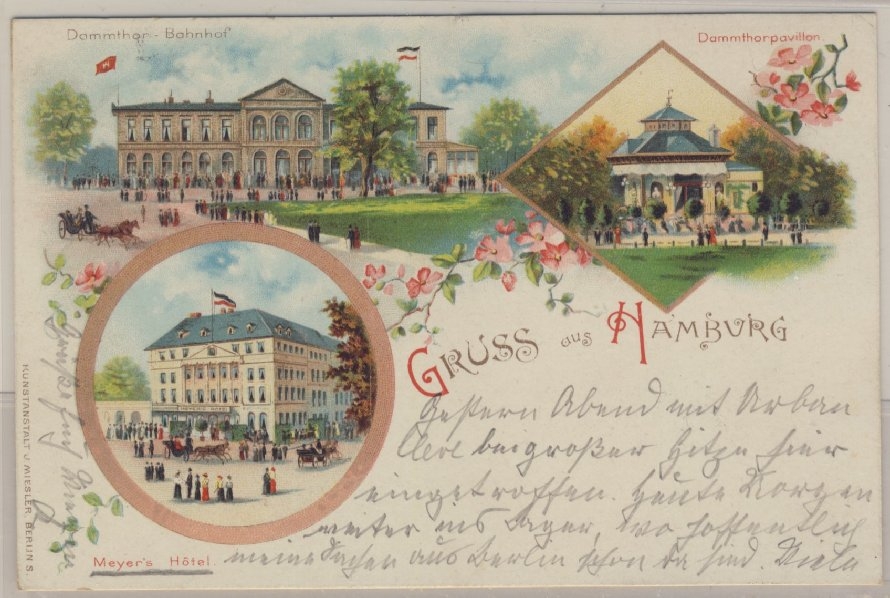 Dammthor-Bahnhof
Dammthorpavillon.
GRUSS aus HAMBURG
Gestern Abend mit Urban
bei großer Hitze hier
eingetroffen. Heute Morgen
weiter ins Lager, wo hoffentlich
meine Sachen aus Berlin schon da sind. Viele
MEYER'S HOTEL
Meyer's Hôtel.
KUNSTANSTALT J. MIESLER, BERLIN S.